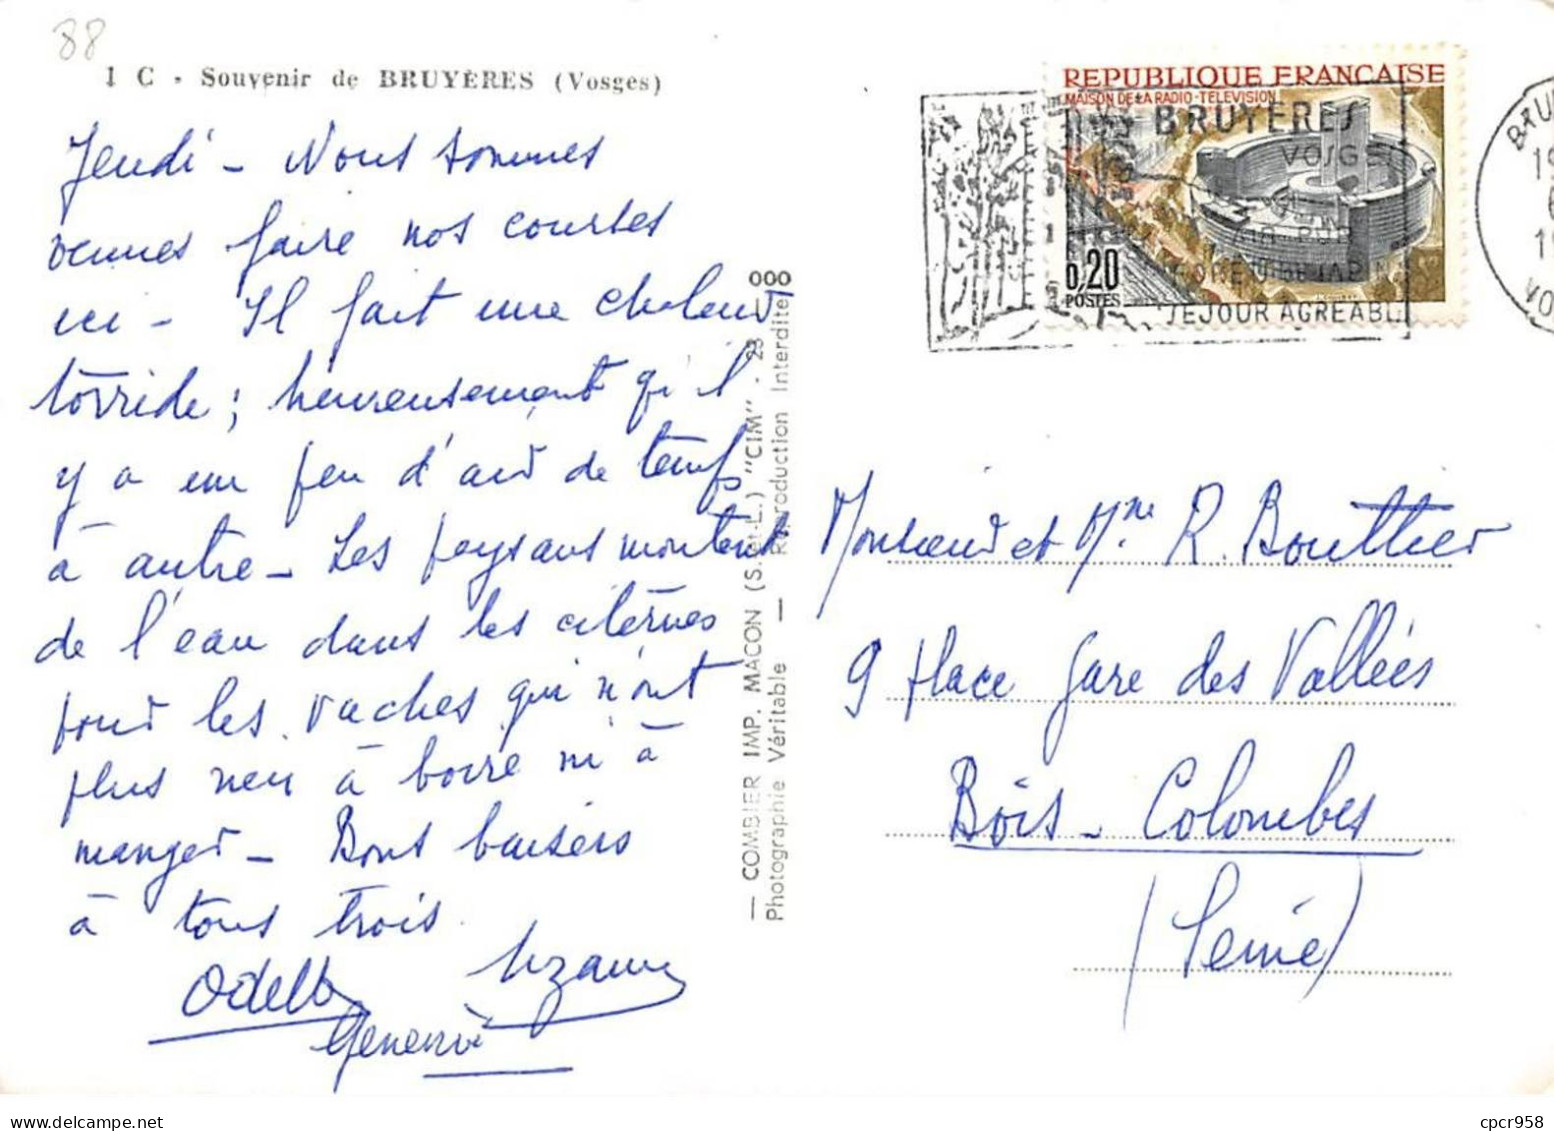 88
1 C - Souvenir de BRUYÈRES (Vosges)
Jeudi - Nous sommes
venues faire nos courses
ici - Il fait une chaleur
torride ; heureusement qu'il
y a un peu d'air de temps
à autre - Les paysans montent
de l'eau dans les citernes
pour les vaches qui n'ont
plus rien à boire ni à
manger - Bons baisers
à tous trois.
Odette Suzanne
Geneviève
000
— COMBIER IMP. MACON (S.-et-L.) "CIM" - 23 —
Photographie Véritable — Reproduction Interdite
REPUBLIQUE FRANÇAISE
MAISON DE LA RADIO-TÉLÉVISION
0,20
POSTES
BRUYERES
VOSGES
AIR PUR
SEJOUR AGREABLE
Monsieur et Mme R. Bouttier
9 Place Gare des Vallées
Bois-Colombes
(Seine)
cpcr958